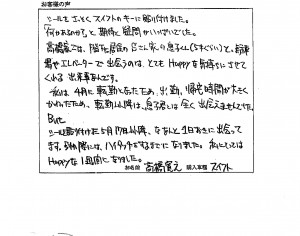 お客様の声
シールをさっそく、スイフトのキーに貼り付けました。
「何があるのか?」と、期待と疑問がいっぱいでした。
高橋家では、階に居住の
エレベーターで出会うのは、とてもHappyな気持ちにさせて
くれる出来事なんです。
私は、4月に転勤となったため、出勤、帰宅時間が大きく
かわたため、転勤以降は、息子君とは全く出会えませんでした。
But
シール貼り付けた5月17日以降、なんと1日おきに出会って
ます。別れ際には、ハイタッチをするまでになりました。私にとっては
Happyな1週間になりました。
お名前 高橋 購入車種 スイフト